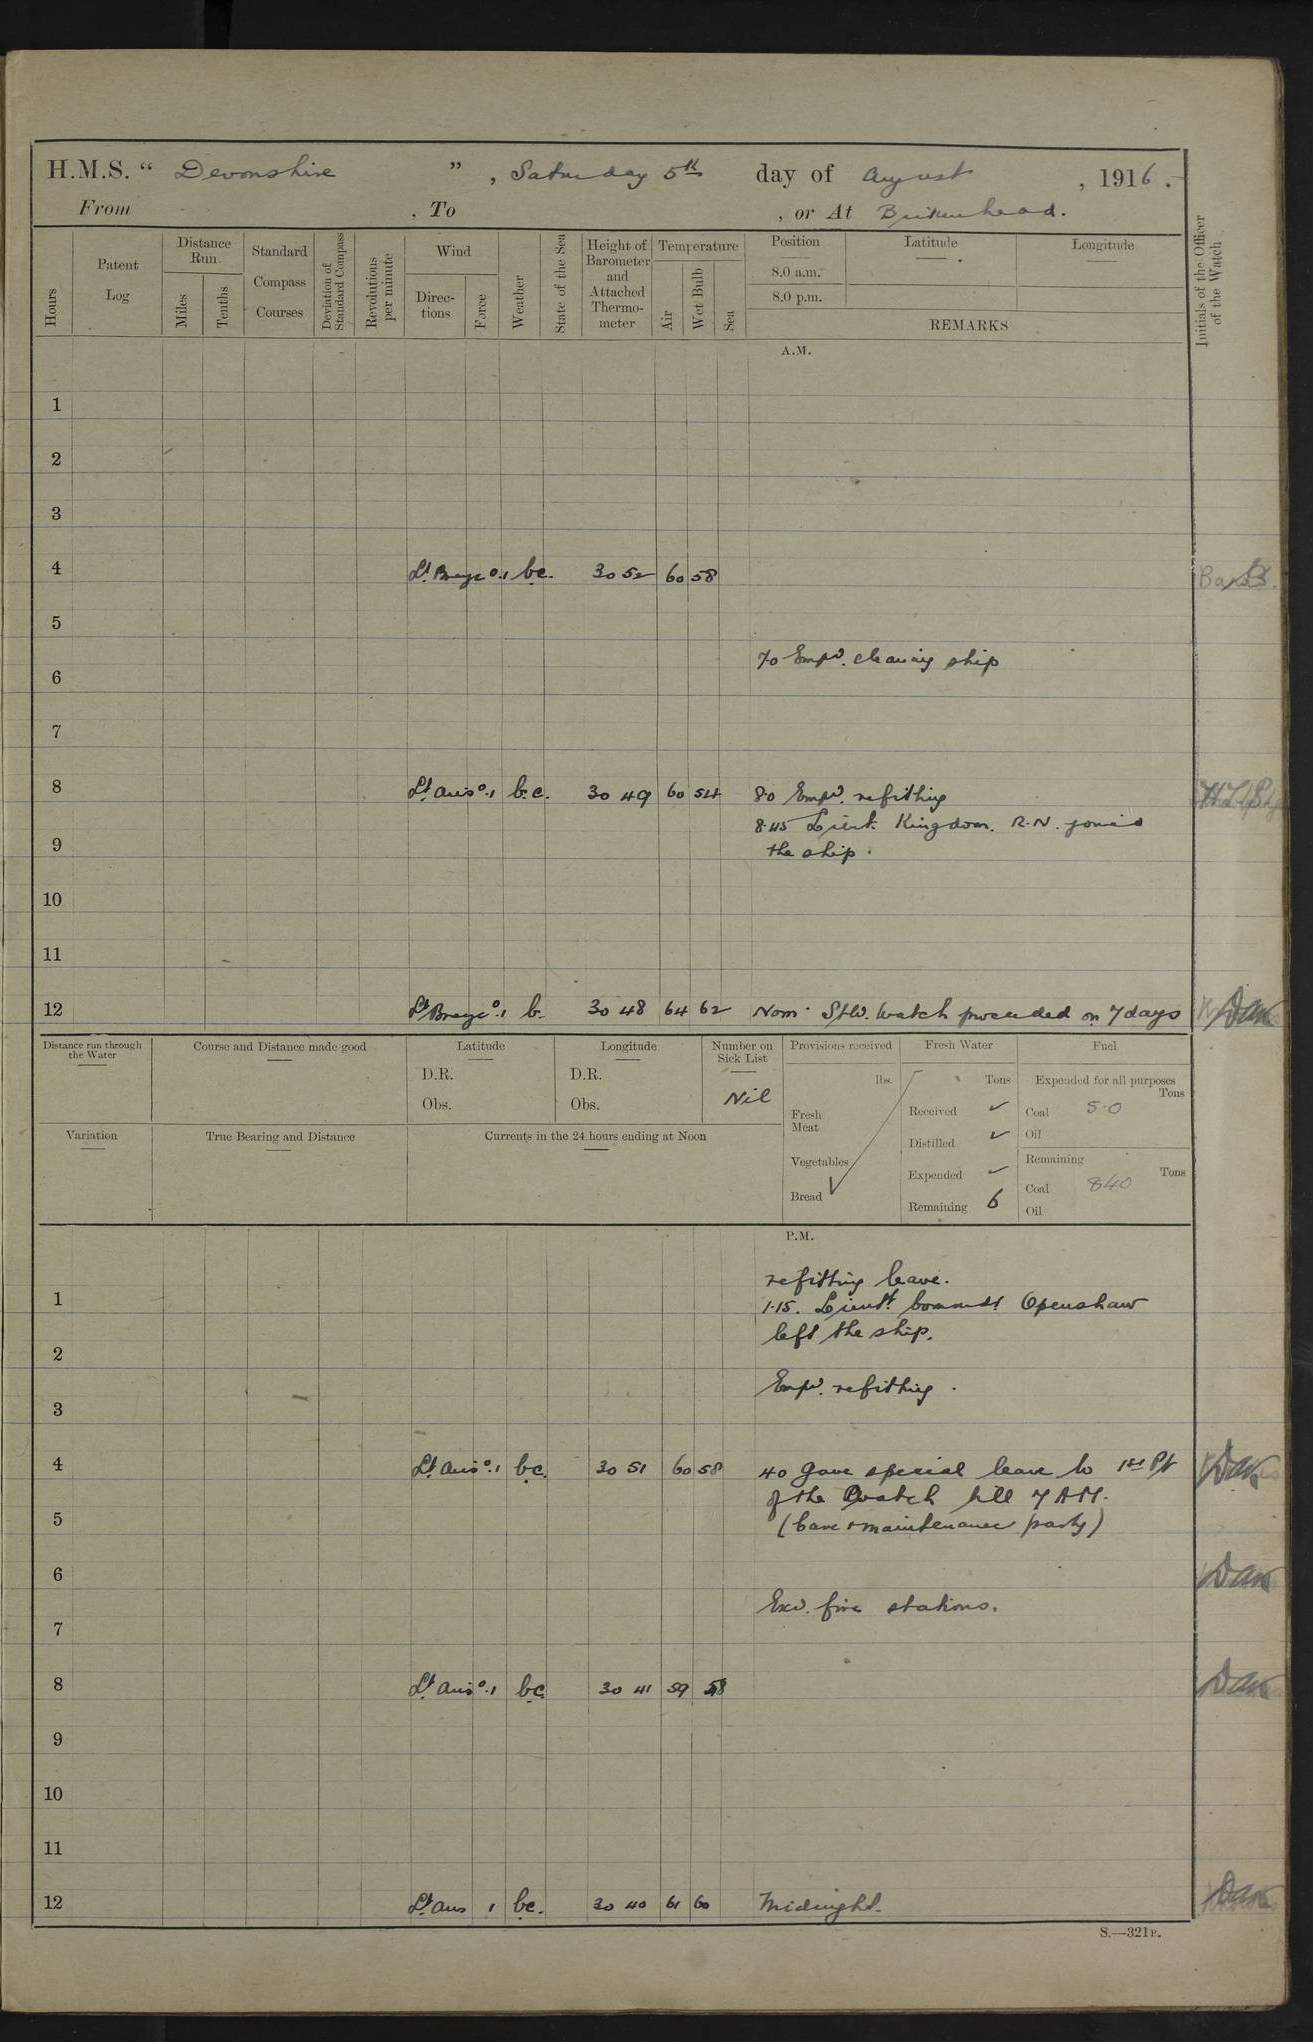 H.M.S. “ Devonshire ” , Saturday 5th day of August , 1916.
From , To , or At Birkenhead.
Hours
Patent Log
Distance Run
Miles
Tenths
Standard Compass Courses
Deviation of Standard Compass
Revolutions per minute
Wind
Directions
Force
Weather
State of the Sea
Height of Barometer and Attached Thermometer
Temperature
Air
Wet Bulb
Sea
Position
8.0 a.m.
8.0 p.m.
Latitude
Longitude
REMARKS
Initials of the Officer of the Watch
A.M.
1
2
3
4 Lt. Breze 0.1 bc. 30 52 60 58
5
7.0 Empd. cleaning ship
6
7
8 Lt airs 0.1 b.c. 30 49 60 54 8.0 Empd. refitting
8.45 Lieut. Kingdom. R.N. joined
9 the ship.
10
11
12 Lt Breze 0.1 b. 30 48 64 62 Noon. Stbd. Watch proceeded on 7 days
Distance run through the Water
Course and Distance made good
Latitude
D.R.
Obs.
Longitude
D.R.
Obs.
Number on Sick List
Nil
Provisions received
lbs.
Fresh Meat
Vegetables
Bread
Fresh Water
Tons
Received
Distilled
Expended
Remaining 6
Fuel
Expended for all purposes
Tons
Coal 5.0
Oil
Remaining
Tons
Coal 840
Oil
Variation
True Bearing and Distance
Currents in the 24 hours ending at Noon
P.M.
refitting leave.
1 1.15. Lieut. Commdr Openshaw
left the ship.
2
Empd. refitting.
3
4 Lt airs 0.1 bc. 30 51 60 58 4.0 Gave special leave to 1st Pt
of the Watch till 7 AM.
5 (Care & maintenance party)
6
Exd. fire stations.
7
8 Lt airs 0.1 bc 30 41 59 58
9
10
11
12 Lt airs 1 bc. 30 40 61 60 Midnight.
S.—321B.